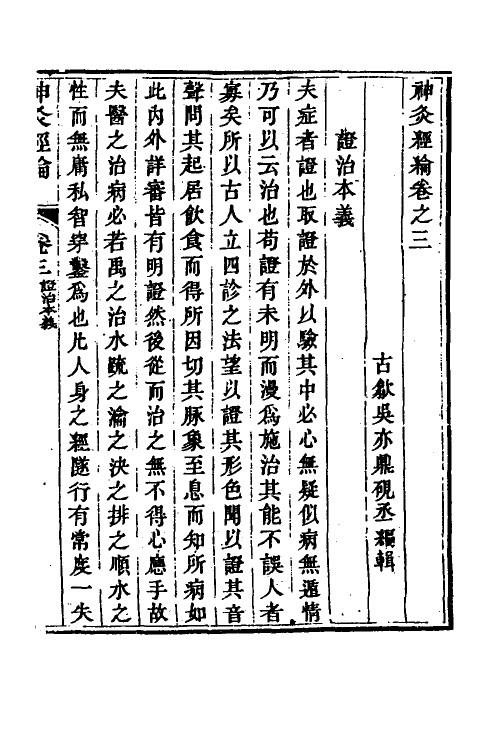 神灸經綸卷之三
古歙吳亦鼎硯丞編輯
證治本義
夫症者證也取證於外以驗其中必心無疑似病無遁情
乃可以云治也苟證有未明而漫爲施治其能不誤人者
寡矣所以古人立四診之法望以證其形色聞以證其音
聲問其起居飲食而得所因切其脈象至息而知所病如
此內外詳審皆有明證然後從而治之無不得心應手故
夫醫之治病必若禹之治水疏之瀹之決之排之順水之
性而無庸私智穿鑿爲也凡人身之經隧行有常度一失
神灸經綸
卷三 證治本義